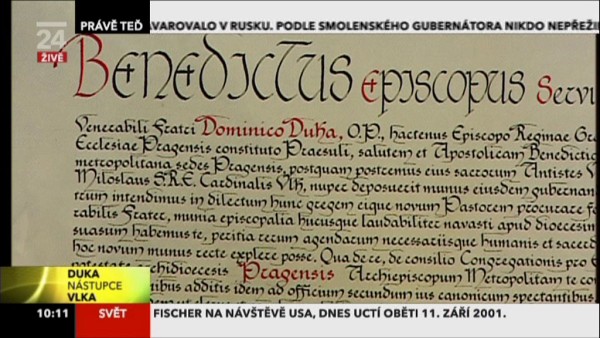 24
ŽIVĚ
PRÁVĚ TEĎ
AVAROVALO V RUSKU. PODLE SMOLENSKÉHO GUBERNÁTORA NIKDO NEPŘEŽI
BENEDICTUS EPISCOPUS SERVU
Venerabili Fratri Dominico Duka, O.P., hactenus Episcopo Reginae Gra
Ecclesiae Pragensis constituto Praesuli, salutem et Apostolicam Benedictio
metropolitana sedes Pragensis, postquam postremus eius sacrorum Antistes V
Miloslaus S.R.E. Cardinalis Vlk, nuper deposuerit munus eiusdem gubernan
trum intendimus in dilectum hunc gregem eique novum Pastorem procurare
rabilis Frater, munia episcopalia hucusque laudabiliter navasti apud dioecesim
suasum habemus te, peritia rerum agendarum necessariisque humanis et sacerd
hoc novum munus recte explere posse. Qua de re, de consilio Congregationis pro E
potestate archidioecesis Pragensis Archiepiscopum Metropolitam te con
ibus additis idem ad officium secundum ius canonicum spectantibus
DUKA
NÁSTUPCE
VLKA
10:11
SVĚT
FISCHER NA NÁVŠTĚVĚ USA, DNES UCTÍ OBĚTI 11. ZÁŘÍ 2001.